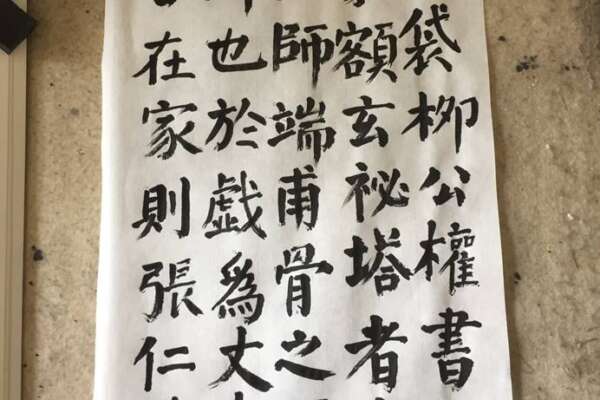 袋柳公權書
額玄祕塔者
師端甫骨之
也於戲為丈
在家則張仁